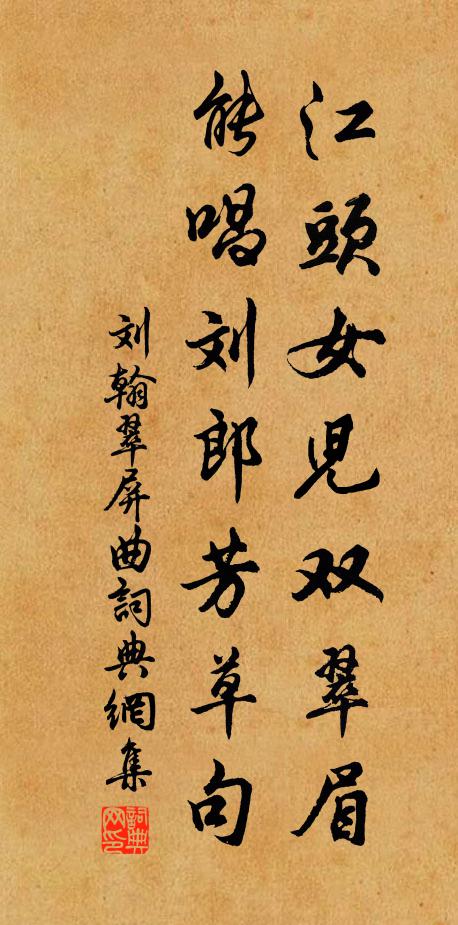 江頭女児双翠眉
能唱刘郎芳草句
刘翰翠屏曲詞典網集
詞典网印